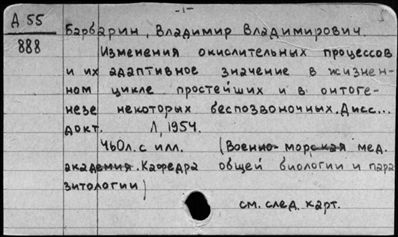 -1-
А 55
888
Барбарин, Владимир Владимирович.
Изменения окислительных процессов
и их адаптивное значение в жизнен-
ном цикле простейших и в онтоге-
незе некоторых беспозвоночных. Дисс...
докт. Л, 1954.
460л. с илл. (Военно-морская мед.
академия. Кафедра общей биологии и пара
зитологии)
см. след. карт.